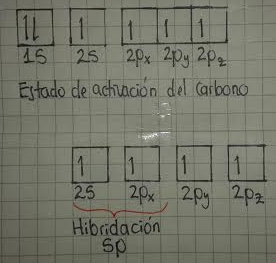 1L 1 1 1 1
1S 2S 2px 2py 2pz
Estado de activación del carbono
1 1 1 1
2S 2px 2py 2pz
Hibridación
Sp